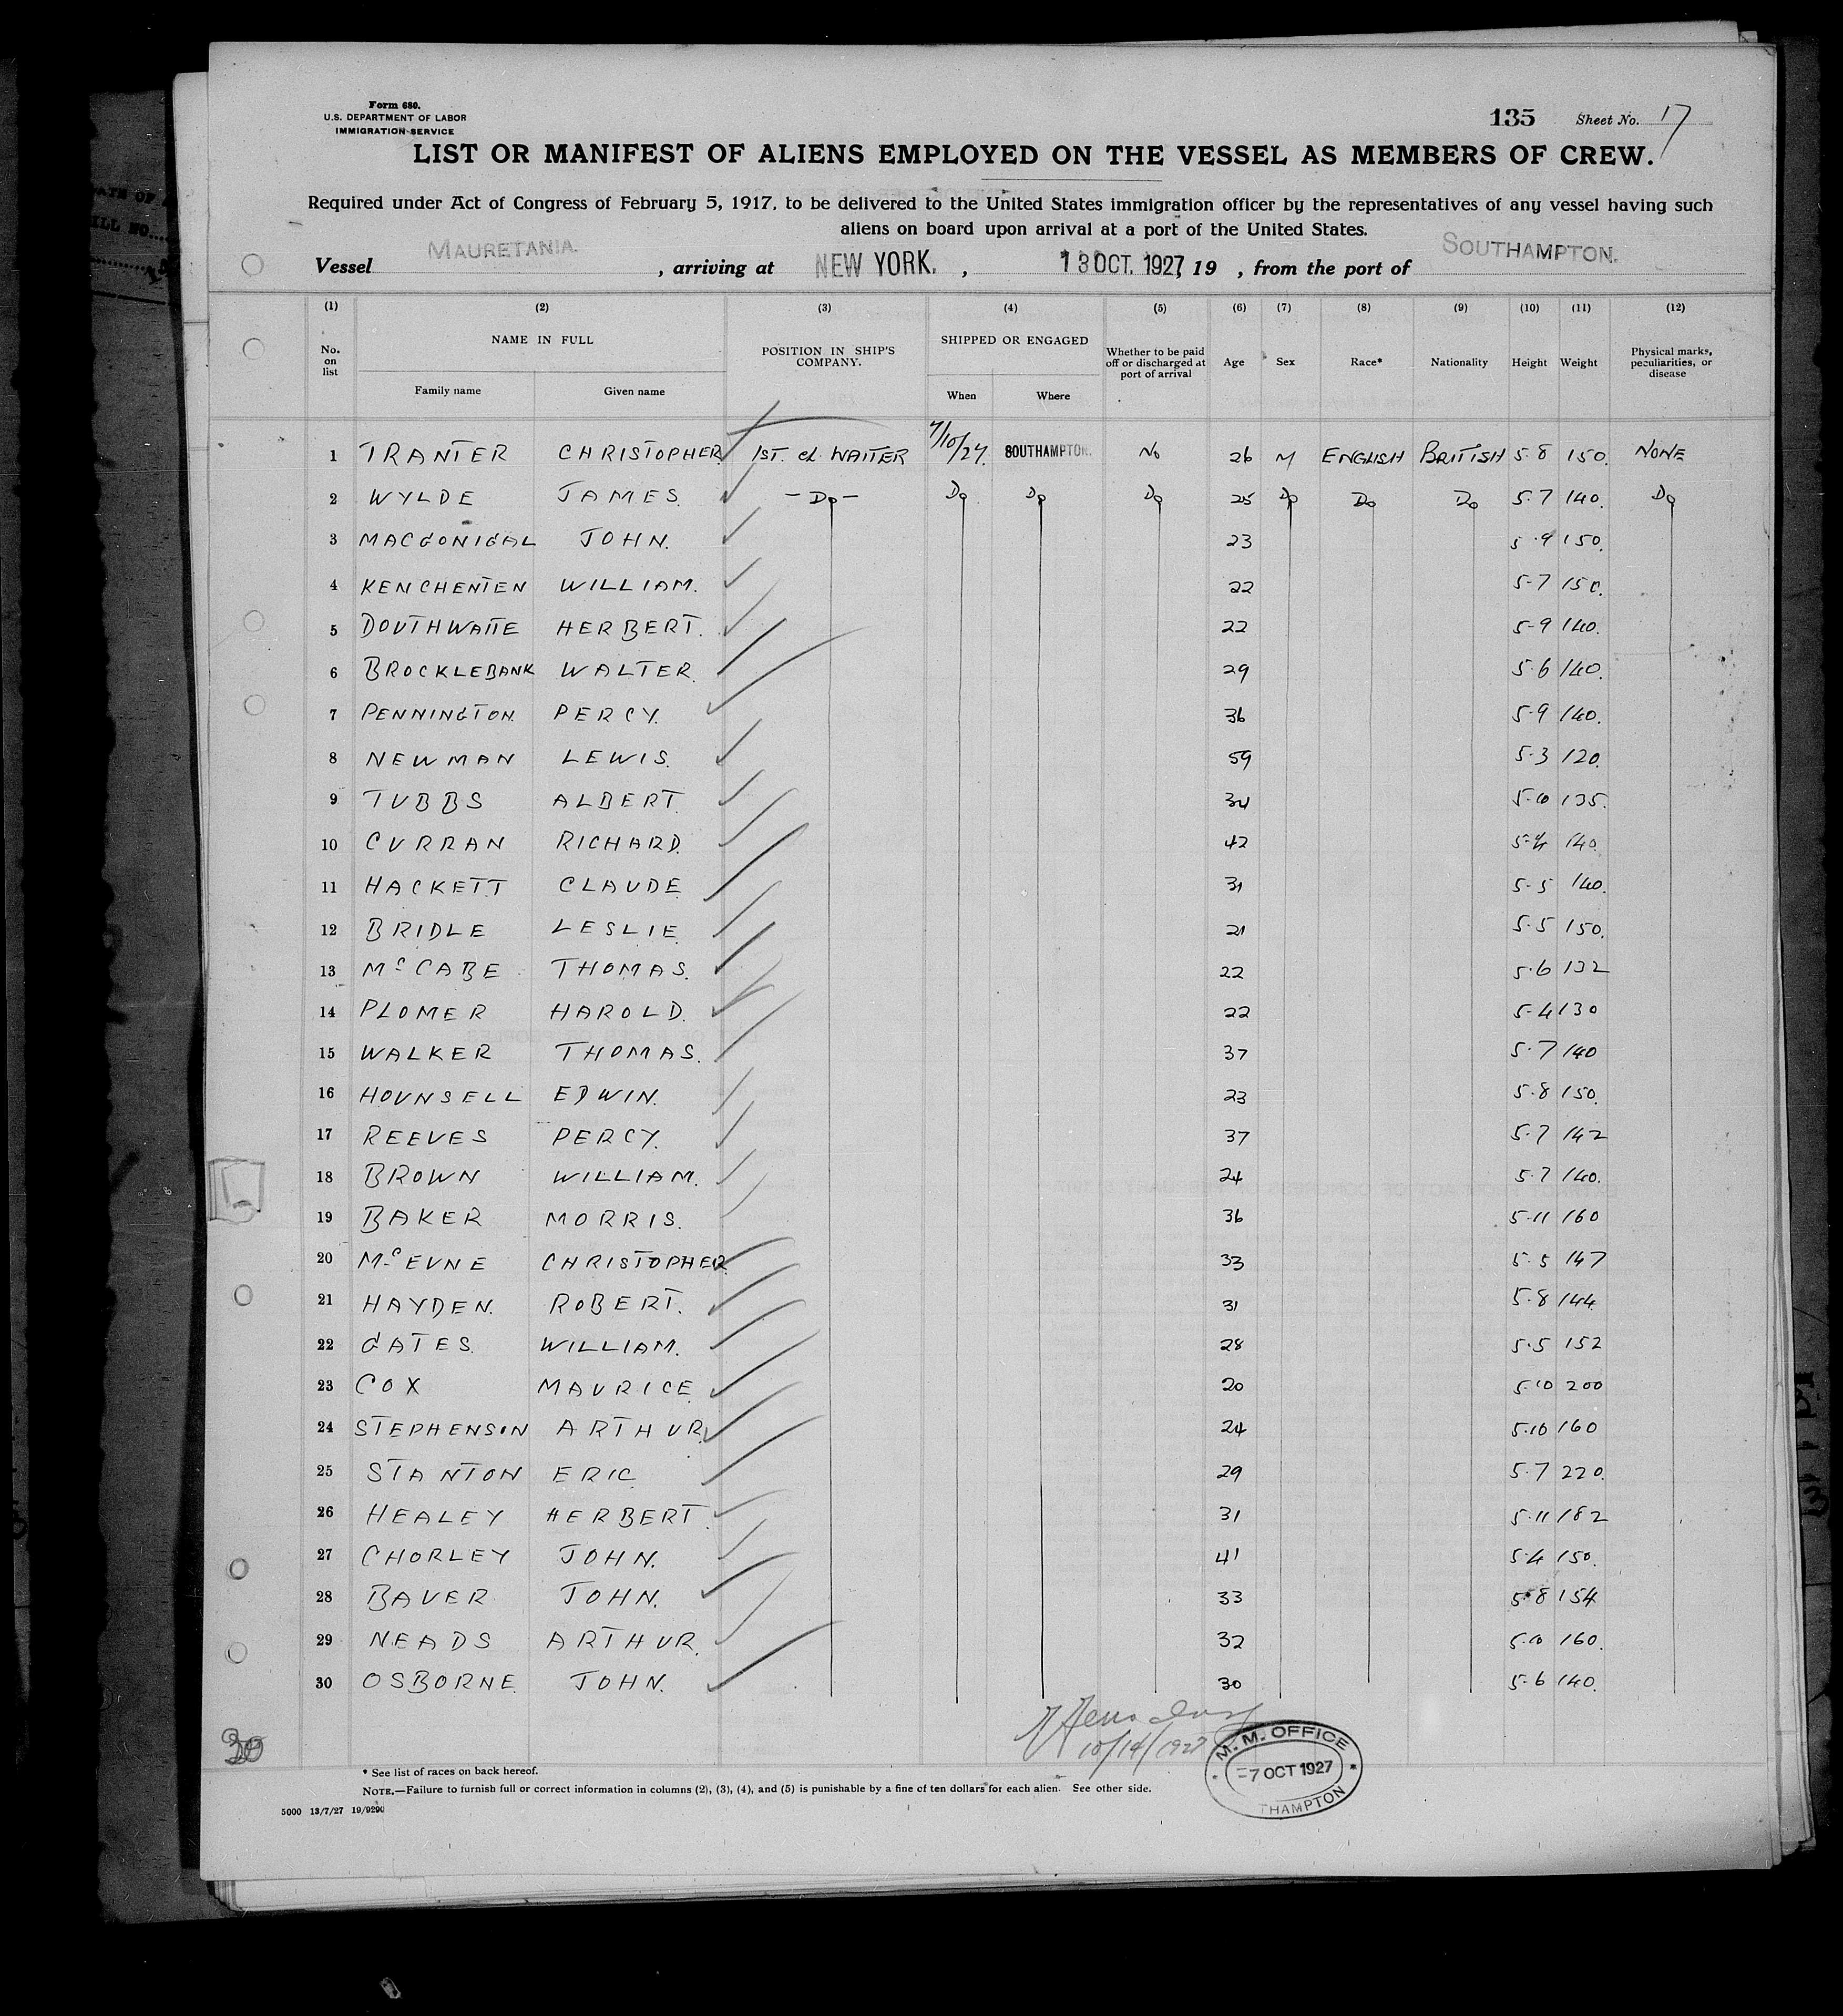 Form 680.
U.S. DEPARTMENT OF LABOR
IMMIGRATION SERVICE
135 Sheet No. 17
LIST OR MANIFEST OF ALIENS EMPLOYED ON THE VESSEL AS MEMBERS OF CREW.
Required under Act of Congress of February 5, 1917, to be delivered to the United States immigration officer by the representatives of any vessel having such
aliens on board upon arrival at a port of the United States.
Vessel MAURETANIA. , arriving at NEW YORK. , 13 OCT. 1927, 19 , from the port of SOUTHAMPTON.
(1) (2) (3) (4) (5) (6) (7) (8) (9) (10) (11) (12)
No. on list NAME IN FULL POSITION IN SHIP'S COMPANY. SHIPPED OR ENGAGED Whether to be paid off or discharged at port of arrival Age Sex Race* Nationality Height Weight Physical marks, peculiarities, or disease
Family name Given name When Where
1 TRANTER CHRISTOPHER 1ST. cl. WAITER 7/10/27. SOUTHAMPTON. No 26 M ENGLISH BRITISH 5.8 150. NONE
2 WYLDE JAMES. - Do - Do Do Do 25 Do Do Do 5.7 140. Do
3 MACGONIGAL JOHN. 23 5.9 150.
4 KENCHENTEN WILLIAM. 22 5-7 150.
5 DOUTHWAITE HERBERT. 22 5-9 140.
6 BROCKLEBANK WALTER. 29 5.6 140.
7 PENNINGTON. PERCY. 36 5.9 140.
8 NEWMAN LEWIS. 59 5-3 120.
9 TUBBS ALBERT. 34 5.10 135.
10 CURRAN RICHARD. 42 5-4 140.
11 HACKETT CLAUDE 31 5-5 140.
12 BRIDLE LESLIE. 21 5.5 150.
13 McCABE THOMAS. 22 5.6 132
14 PLOMER HAROLD. 22 5-4 130
15 WALKER THOMAS. 37 5.7 140
16 HOUNSELL EDWIN. 23 5.8 150.
17 REEVES PERCY. 37 5.7 142
18 BROWN WILLIAM. 24 5.7 140.
19 BAKER MORRIS. 36 5.11 160
20 McEVNE CHRISTOPHER 33 5.5 147
21 HAYDEN. ROBERT. 31 5.8 144
22 GATES. WILLIAM. 28 5.5 152
23 COX MAURICE 20 5.10 200
24 STEPHENSON ARTHUR. 24 5.10 160
25 STANTON ERIC 29 5.7 220.
26 HEALEY HERBERT. 31 5.11 182
27 CHORLEY JOHN. 41 5.4 150.
28 BAUER JOHN. 33 5.8 154
29 NEADS ARTHUR. 32 5.10 160.
30 OSBORNE. JOHN. 30 5-6 140.
10/14/1927
30
M. M. OFFICE
=7 OCT 1927
THAMPTON
* See list of races on back hereof.
NOTE.—Failure to furnish full or correct information in columns (2), (3), (4), and (5) is punishable by a fine of ten dollars for each alien. See other side.
5000 13/7/27 19/9290